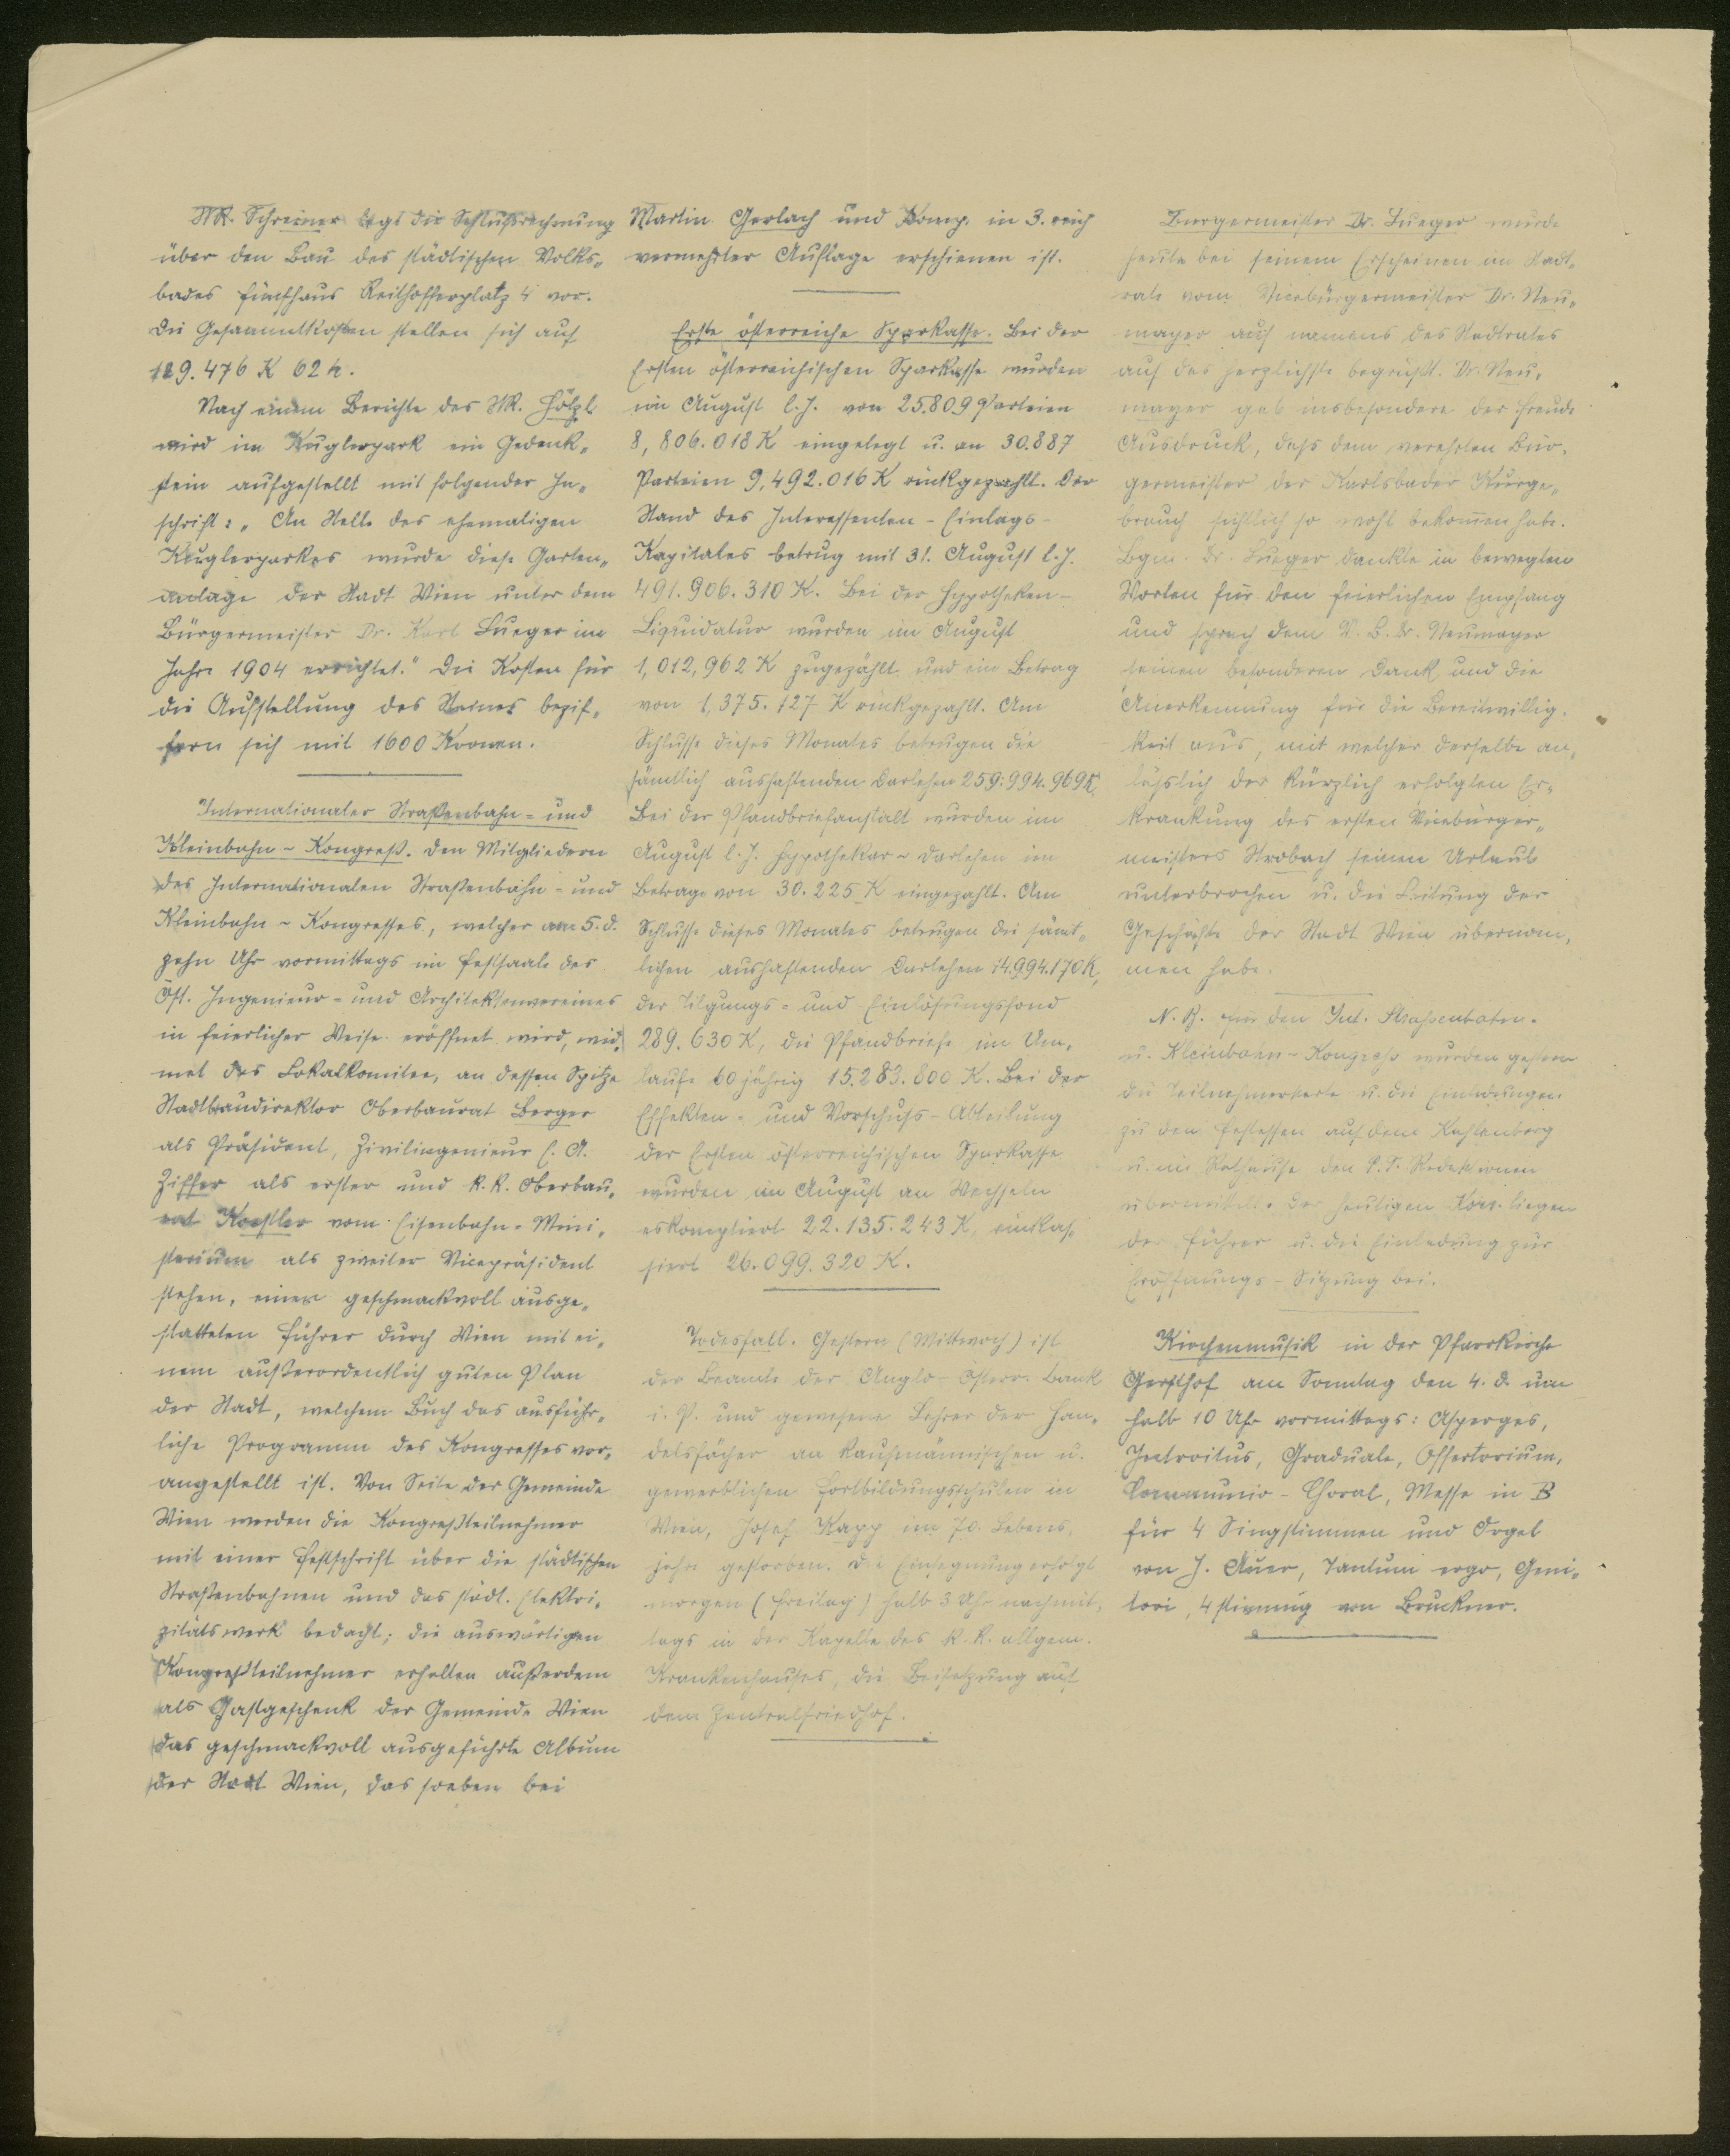 StR. Schreiner legt die Schlußrechnung
über den Bau des städtischen Volks-
bades Fünfhaus Reithofferplatz 4 vor.
Die Gesammtkosten stellen sich auf
129.476 K 62 h.
Nach einem Berichte des StR. Hölzl
wird im Kuglerpark ein Gedenk-
stein aufgestellt mit folgender In-
schrift: „An Stelle des ehemaligen
Kuglerparkes wurde diese Garten-
anlage der Stadt Wien unter dem
Bürgermeister Dr. Karl Lueger im
Jahre 1904 errichtet." Die Kosten für
die Aufstellung des Steines bezif-
fern sich mit 1600 Kronen.
Internationaler Straßenbahn- und
Kleinbahn-Kongreß. Den Mitgliedern
des Internationalen Straßenbahn- und
Kleinbahn-Kongresses, welcher am 5. d.
zehn Uhr vormittags im Festsaale des
Öst. Ingenieur- und Architektenvereines
in feierlicher Weise eröffnet wird, wid-
met das Lokalkomitee, an dessen Spitze
Stadtbaudirektor Oberbaurat Berger
als Präsident, Zivilingenieur E. A.
Ziffer als erster und k. k. Oberbau-
rat Koestler vom Eisenbahn-Mini-
sterium als zweiter Vicepräsident
stehen, einen geschmackvoll ausge-
statteten Führer durch Wien mit ei-
nem außerordentlich guten Plan
der Stadt, welchem Buch das ausführ-
liche Programm des Kongresses vor-
angestellt ist. Von Seite der Gemeinde
Wien werden die Kongreßteilnehmer
mit einer Festschrift über die städtischen
Straßenbahnen und das städt. Elektri-
zitätswerk bedacht; die auswärtigen
Kongreßteilnehmer erhalten außerdem
als Gastgeschenk der Gemeinde Wien
das geschmackvoll ausgeführte Album
der Stadt Wien, das soeben bei
Martin Gerlach und Komp. in 3. reich
vermehrter Auflage erschienen ist.
Erste österreiche Sparkasse. Bei der
Ersten österreichischen Sparkasse wurden
im August l. J. von 25.809 Parteien
8,806.018 K eingelegt u. an 30.887
Parteien 9,492.016 K rückgezahlt. Der
Stand des Interessenten-Einlags-
Kapitales betrug mit 31. August l. J.
491.906.310 K. Bei der Hypotheken-
Liquidatur wurden im August
1,012,962 K zugezählt und ein Betrag
von 1,375.127 K rückgezahlt. Am
Schlusse dieses Monates betrugen die
sämtlich aushaftenden Darlehen 259.994.969 K.
Bei der Pfandbriefanstalt wurden im
August l. J. Hypothekar-Darlehen im
Betrage von 30.225 K eingezahlt. Am
Schlusse dieses Monates betrugen die sämt-
lichen aushaftenden Darlehen 14.994.170 K,
der Tilgungs- und Einlösungsfond
289.630 K, die Pfandbriefe im Um-
laufe 60jährig 15.283.800 K. Bei der
Effekten- und Vorschuß-Abteilung
der Ersten österreichischen Sparkasse
wurden im August an Wechseln
eskomptiert 22.135.243 K, einkas-
siert 26.099.320 K.
Todesfall. Gestern (Mittwoch) ist
der Beamte der Anglo-Österr. Bank
i. P. und gewesene Lehrer der Han-
delsfächer an kaufmännischen u.
gewerblichen Fortbildungsschulen in
Wien, Josef Kapp im 70. Lebens-
jahre gestorben. Die Einsegnung erfolgt
morgen (Freitag) halb 3 Uhr nachmit-
tags in der Kapelle des k. k. allgem.
Krankenhauses, die Beisetzung auf
dem Zentralfriedhof.
Bürgermeister Dr. Lueger wurde
heute bei seinem Erscheinen im Stadt-
rate vom Vicebürgermeister Dr. Neu-
mayer auf namens des Stadtrates
auf das herzlichste begrüßt. Dr. Neu-
mayer gab insbesondere der Freude
Ausdruck, daß dem verehrten Bür-
germeister der Karlsbader Kurge-
brauch sichtlich so wohl bekommen habe.
Bgm. Dr. Lueger dankte in bewegten
Worten für den feierlichen Empfang
und sprach dem V. B. Dr. Neumayer
seinen besonderen Dank und die
Anerkennung für die Bereitwillig-
keit aus, mit welcher derselbe an-
läßlich der kürzlich erfolgten Er-
krankung des ersten Vicebürger-
meisters Strobach seinen Urlaub
unterbrochen u. die Leitung der
Geschäfte der Stadt Wien übernom-
men habe.
N. B. Für den Int. Strassenbahn-
u. Kleinbahn-Kongreß wurden gestern
die Teilnehmerkarte u. die Einladungen
zu den Festessen auf dem Kahlenberg
u. im Rathause den P. T. Redaktionen
übermittelt. Der heutigen Korr. liegen
der Führer u. die Einladung zur
Eröffnungs-Sitzung bei.
Kirchenmusik in der Pfarrkirche
Gersthof am Sonntag den 4. d. um
halb 10 Uhr vormittags: Asperges,
Introitus, Graduale, Offertorium,
Communio-Choral, Messe in B
für 4 Singstimmen und Orgel
von J. Auer, Tantum ergo, Geni-
tori, 4 stimmig von Bruckner.